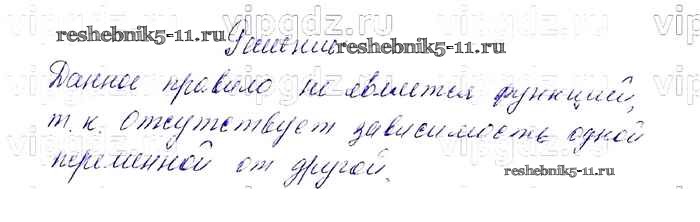 vipgdz.ru vipgdz.ru vipgdz.ru
reshebnik5-11.ru Решение reshebnik5-11.ru
Данное правило не является функцией,
т.к. отсутствует зависимость одной
переменной от другой.
reshebnik5-11.ru
vipgdz.ru vipgdz.ru vipgdz.ru